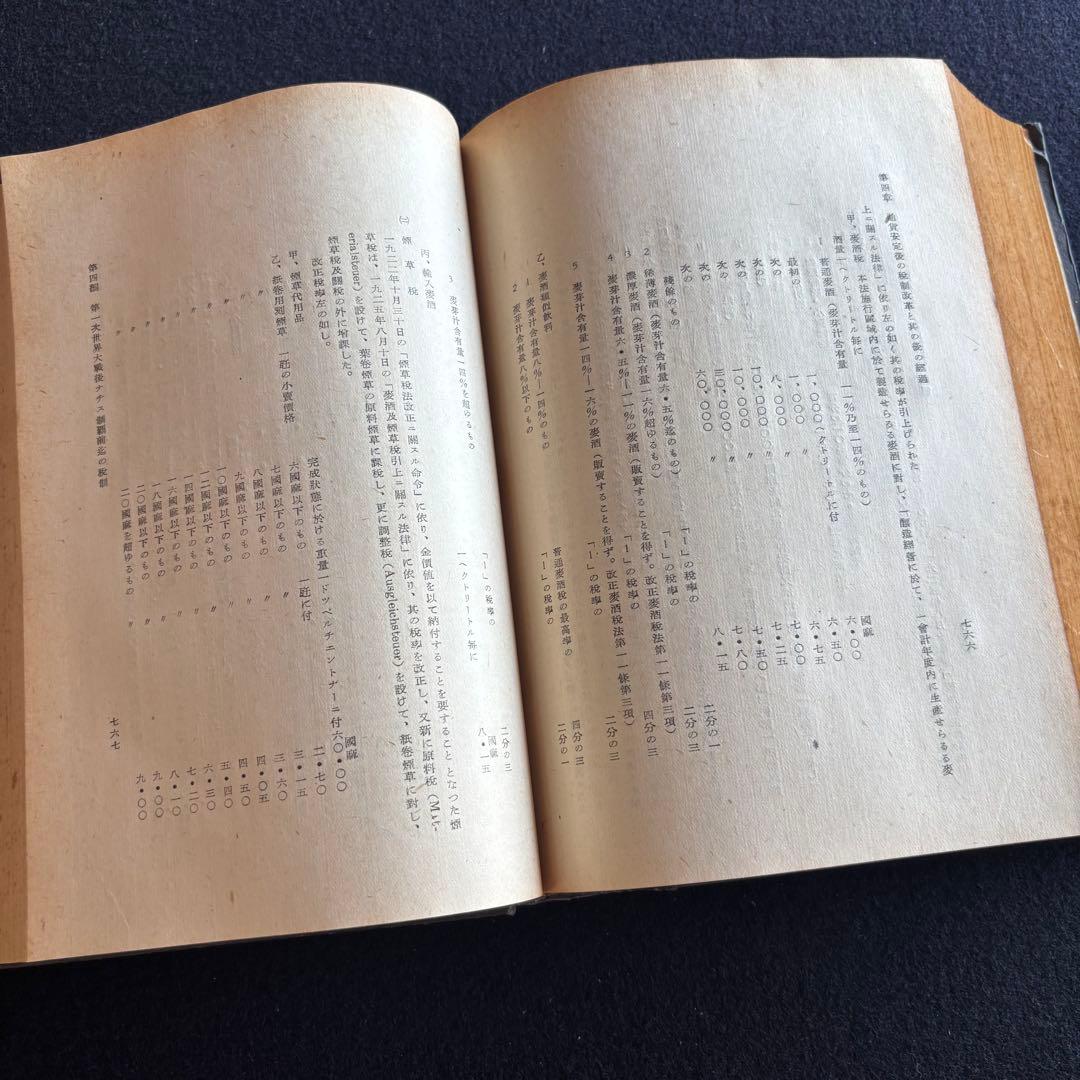 第四章 通貨安定後の税制改革と其の後の經過
七六六
上ニ關スル法律」に依り左の如く其の税率が引上げられた
甲、麥酒税 本法施行區域内に於て製造せらるる麥酒に對し、一釀造經營に於て、一會計年度内に生産せらるる麥
酒量一ヘクトリートル毎に
1 普通麥酒(麥芽汁含有量 一一%乃至一四%のもの) 國麻
最初の 一、〇〇〇ヘクトリートルに付 六・〇〇
次の 一、〇〇〇 〃 六・五〇
次の 八、〇〇〇 〃 六・七五
次の 一〇、〇〇〇 〃 七・〇〇
次の 一〇、〇〇〇 〃 七・二五
次の 三〇、〇〇〇 〃 七・五〇
次の 六〇、〇〇〇 〃 七・八〇
殘餘のもの 八・一五
2 稀薄麥酒(麥芽汁含有量六・五%迄のもの) 「1」の税率の 二分の一
3 濃厚麥酒(麥芽汁含有量一六%超ゆるもの) 「1」の税率の 二分の三
4 麥芽汁含有量六・五%―一一%の麥酒(販賣することを得ず。改正麥酒税法第一一條第三項) 「1」の税率の 四分の三
5 麥芽汁含有量一四%―一六%の麥酒(販賣することを得ず。改正麥酒税法第一一條第三項) 「1」の税率の 二分の三
乙、麥酒類似飲料
1 麥芽汁含有量八%―一四%のもの 普通麥酒税の最高率の 四分の三
2 麥芽汁含有量八%以下のもの 「1」の税率の 二分の一
3 麥芽汁含有量一四%を超ゆるもの 「1」の税率の 二分の三
丙、輸入麥酒 一ヘクトリートル毎に 國麻 八・一五
煙草税
一九二二年十月三十日の「煙草税法改正ニ關スル命令」に依り、金價値を以て納付することを要することとなつた煙
草税は、一九二五年八月十日の「麥酒及煙草税引上ニ關スル法律」に依り、其の税率を改正し、又新に原料税(Mat-
erialstener)を設けて、葉卷煙草の原料煙草に課税し、更に調整税(Ausgleichstener)を設けて、紙卷煙草に對し、
煙草税及關税の外に増課した。
改正税率左の如し。
國麻
甲、煙草代用品 完成狀態に於ける重量一ドツペルチエントナーニ付六〇・〇〇
乙、紙卷用刻煙草 一瓩の小賣價格 六國麻以下のもの 一瓩に付 二・七〇
〃 七國麻以下のもの 〃 三・一五
〃 八國麻以下のもの 〃 三・六〇
〃 九國麻以下のもの 〃 四・〇五
〃 一〇國麻以下のもの 〃 四・五〇
〃 一二國麻以下のもの 〃 五・四〇
〃 一四國麻以下のもの 〃 六・三〇
〃 一六國麻以下のもの 〃 七・二〇
〃 一八國麻以下のもの 〃 八・一〇
〃 二〇國麻以下のもの 〃 九・〇〇
〃 二〇國麻を超ゆるもの 〃 九・〇〇
第四節 第一次世界大戰後ナチス制覇前迄の税制
七六七